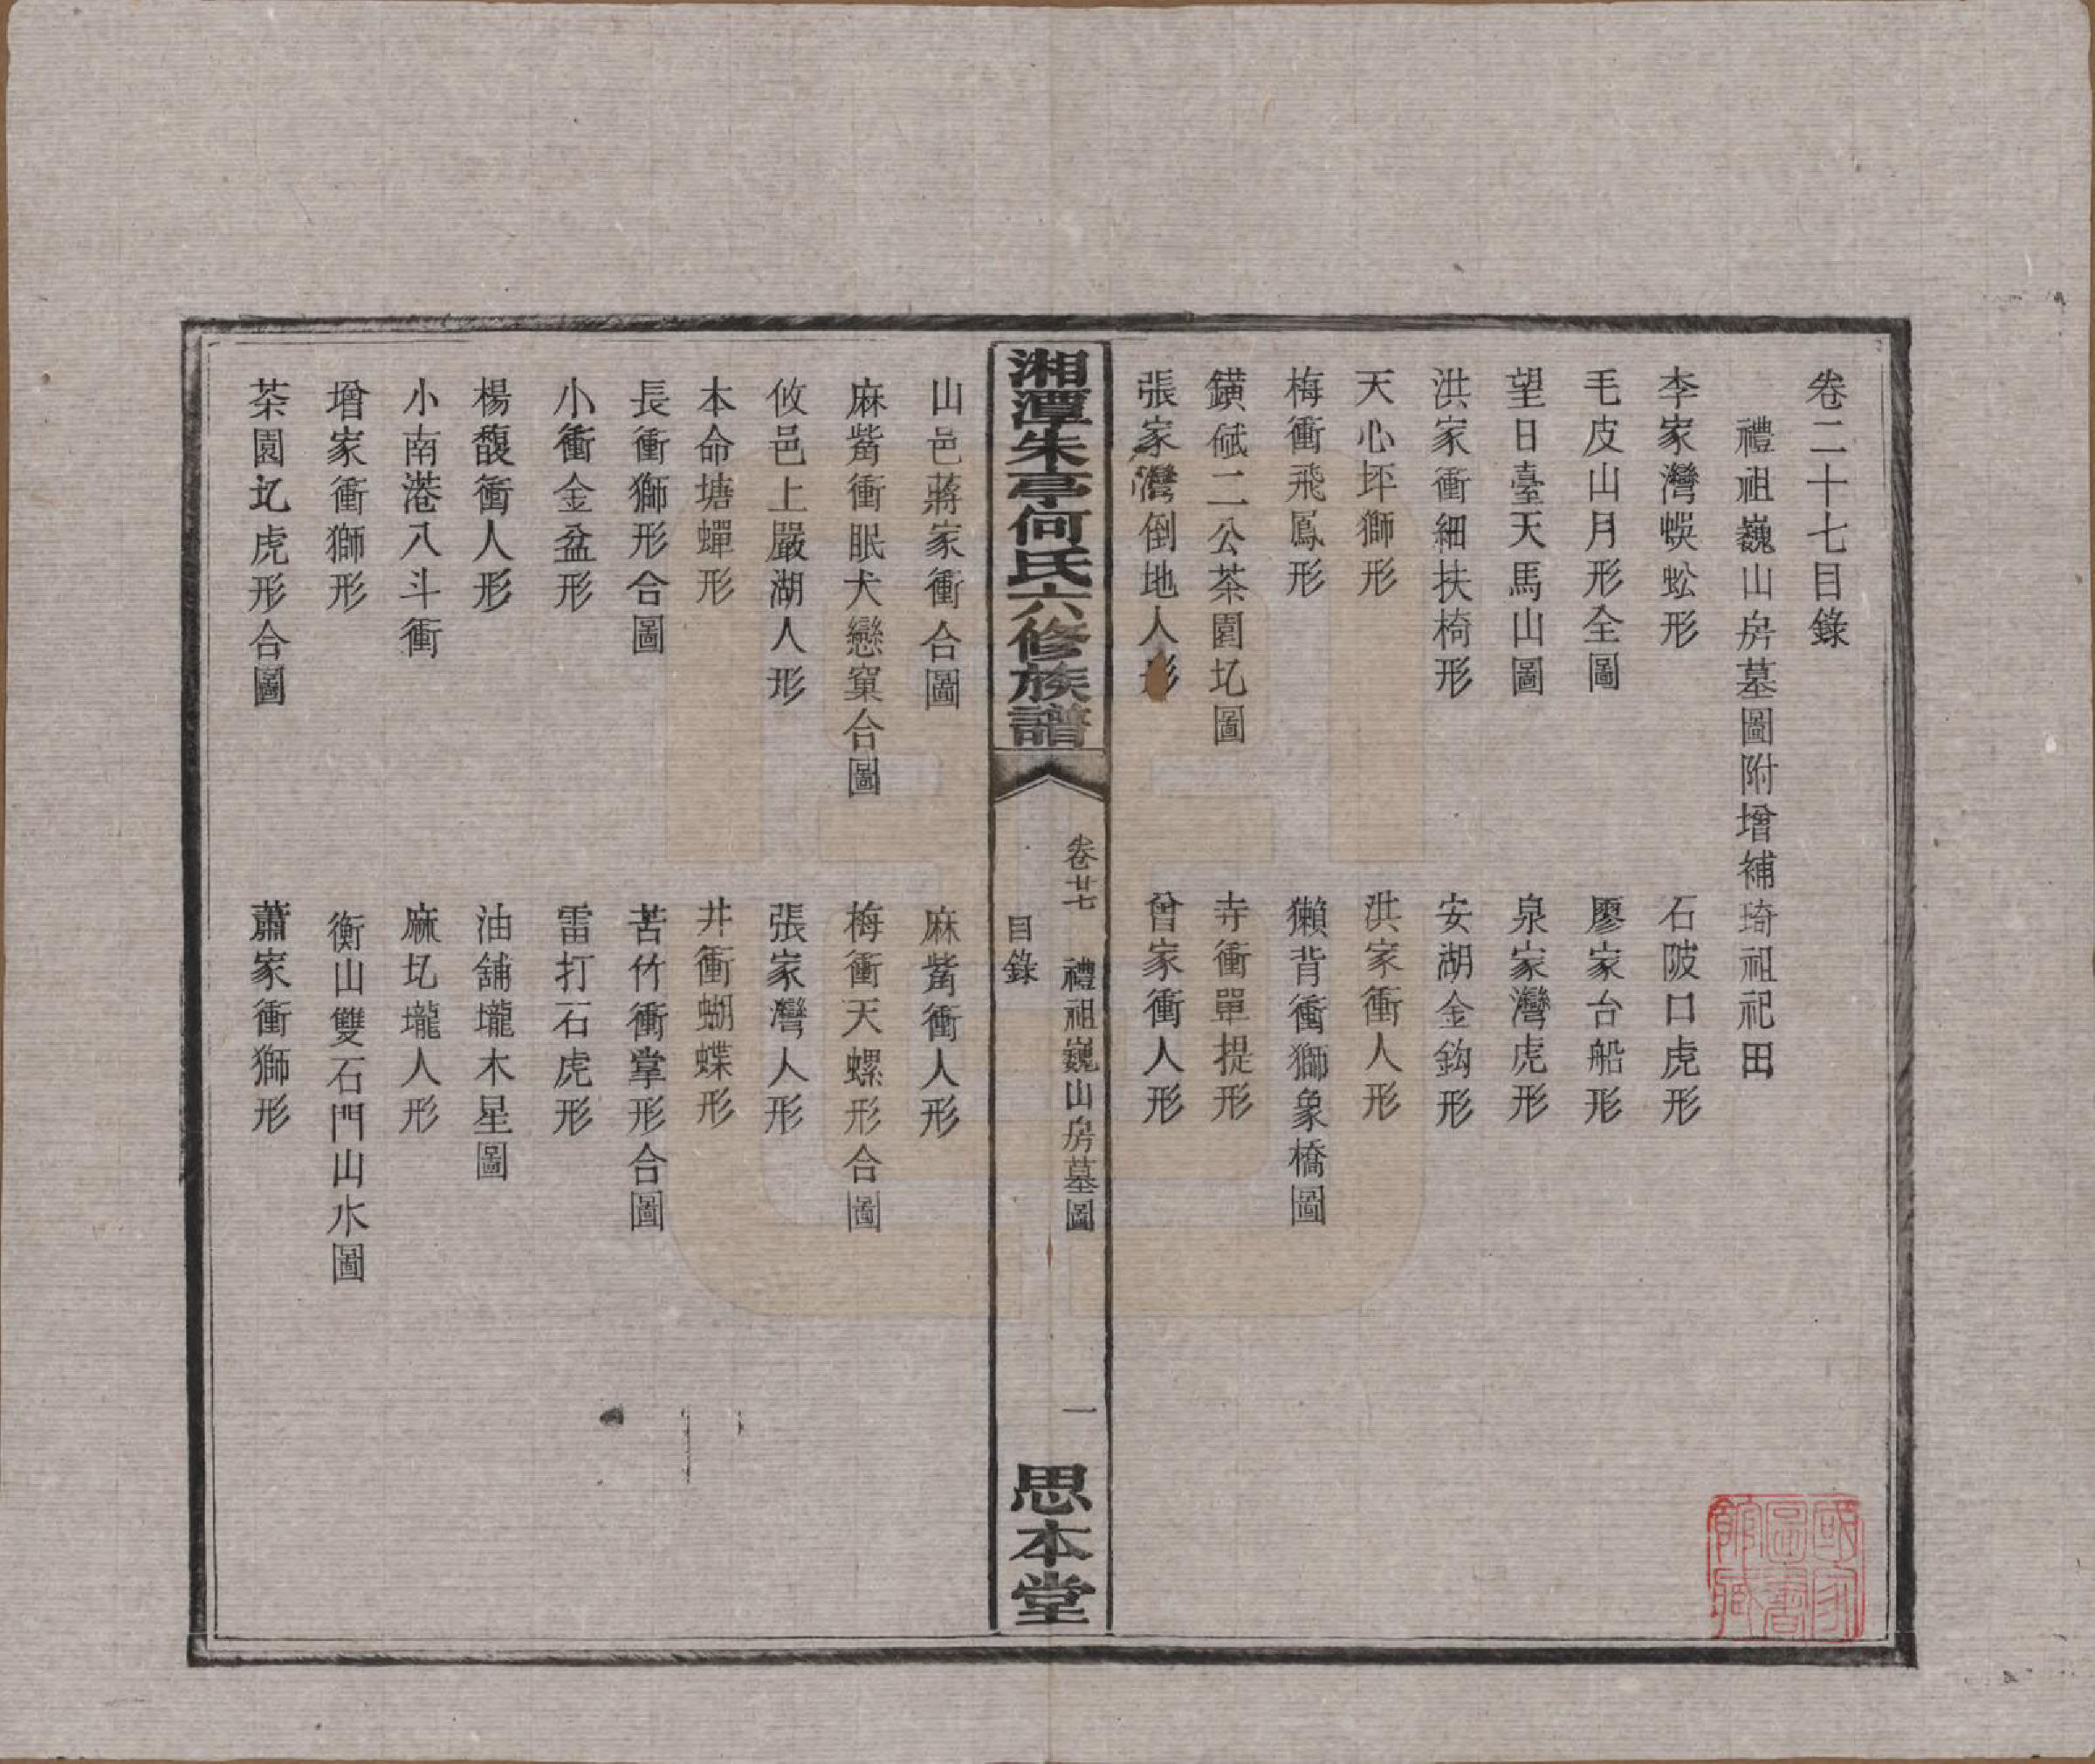 卷二十七目錄
禮祖巍山房墓圖附增補琦祖祀田
李家灣蜈蚣形
石陂口虎形
毛皮山月形全圖
廖家台船形
望日臺天馬山圖
泉家灣虎形
洪家衝細扶椅形
安湖金鈎形
天心坪獅形
洪家衝人形
梅衝飛鳳形
獺背衝獅象橋圖
鐄倵二公茶園圠圖
寺衝單提形
張家灣倒地人形
曾家衝人形
湘潭朱亭何氏六修族譜
卷廿七 禮祖巍山房墓圖
目錄
一
思本堂
山邑蔣家衝合圖
麻觜衝人形
麻觜衝眠犬戀窠合圖
梅衝天螺形合圖
攸邑上嚴湖人形
張家灣人形
本命塘蟬形
井衝蝴蝶形
長衝獅形合圖
苦竹衝掌形合圖
小衝金盆形
雷打石虎形
楊馥衝人形
油舖壠木星圖
小南港八斗衝
麻圠壠人形
增家衝獅形
衡山雙石門山水圖
茶園圠虎形合圖
蕭家衝獅形
國家圖書館藏